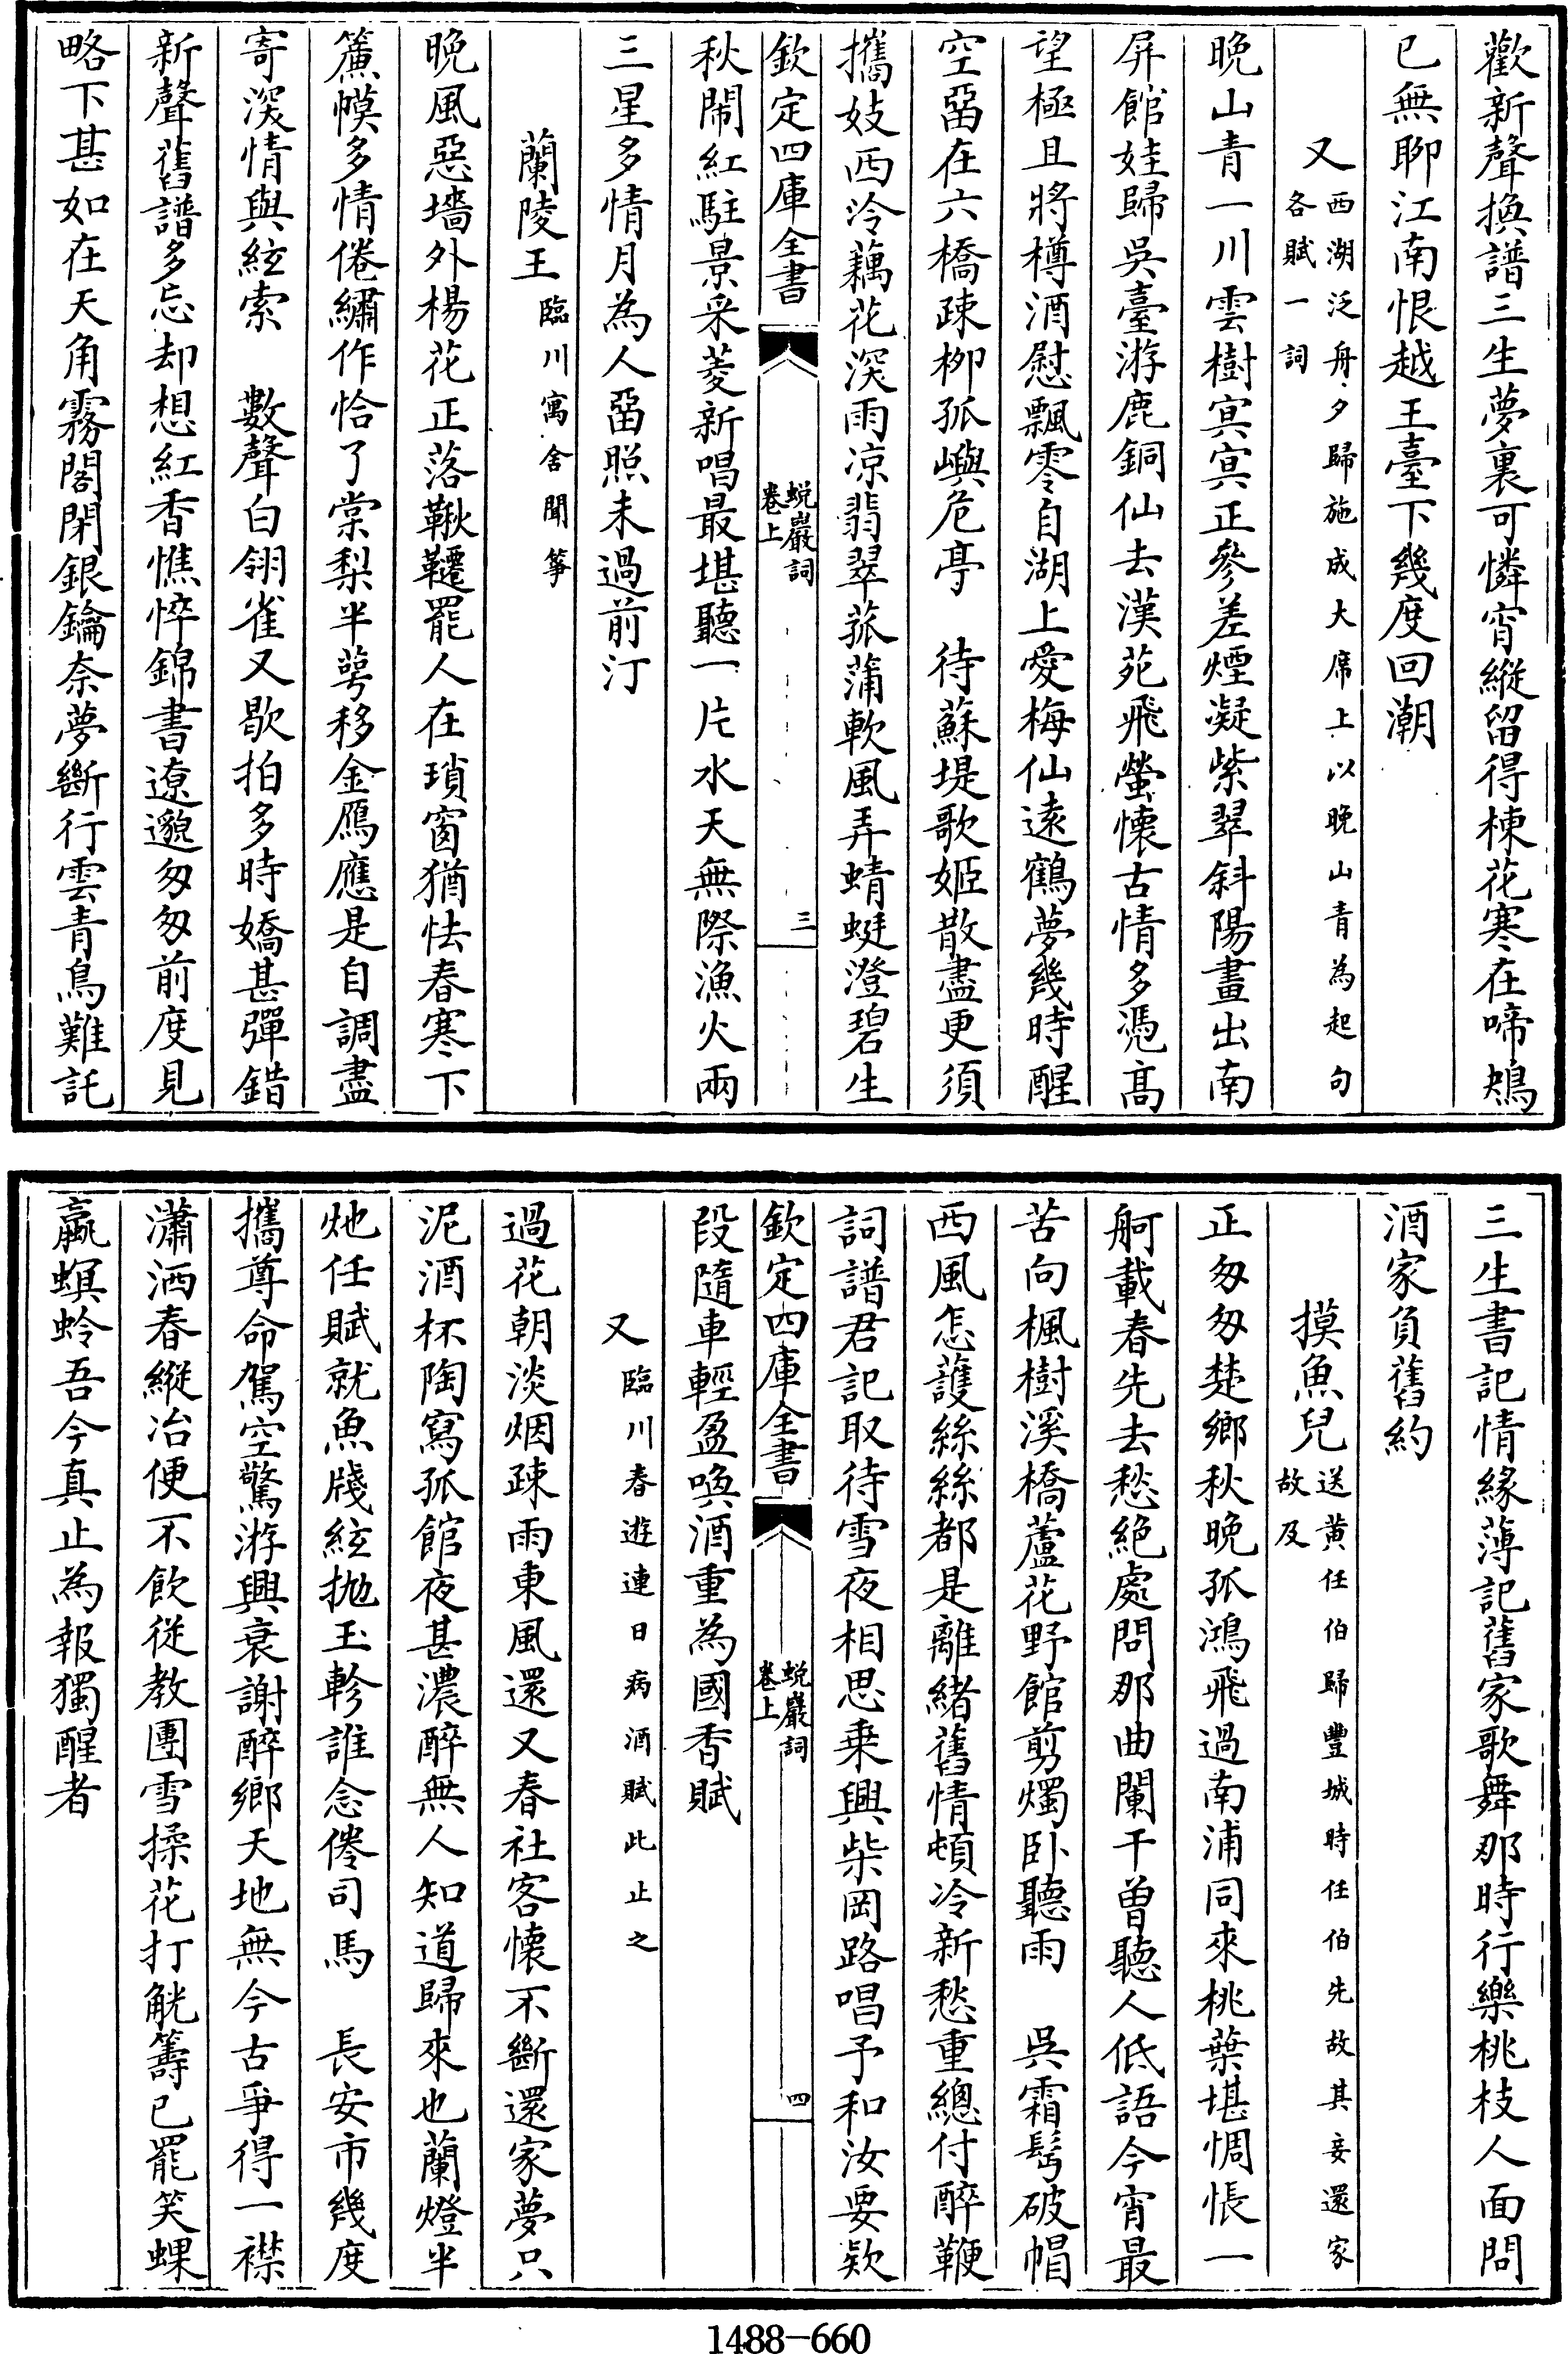 歡新聲換譜三生夢裏可憐宵縱留得楝花寒在啼鴂
已無聊江南恨越王臺下幾度回潮
又西湖泛舟夕歸施成大席上以晚山青為起句
各賦一詞
晚山青一川雲樹冥冥正參差煙凝紫翠斜陽畫出南
屏館娃歸吳臺游鹿銅仙去漢苑飛螢懷古情多憑高
望極且將樽酒慰飄零自湖上愛梅仙遠鶴夢幾時醒
空畱在六橋疎栁孤嶼危亭　待蘇堤歌姬散盡更須
攜妓西泠藕花深雨凉翡翠菰蒲軟風弄蜻蜓澄碧生
欽定四庫全書
蛻巖詞
卷上
三
秋鬧紅駐景采菱新唱最堪聽一片水天無際漁火兩
三星多情月為人畱照未過前汀
蘭陵王臨川寓舍聞箏
晚風惡墻外楊花正落鞦韆罷人在瑣窗猶怯春寒下
簾幙多情倦繡作恰了棠梨半萼移金鴈應是自調盡
寄深情與絃索　數聲白翎雀又歇拍多時嬌甚彈錯
新聲舊譜多忘却想紅香憔悴錦書遼邈匆匆前度見
略下甚如在天角霧閣閉銀鑰奈夢斷行雲青鳥難託
三生書記情緣薄記舊家歌舞那時行樂桃枝人面問
酒家負舊約
摸魚兒送黄任伯歸豐城時任伯先故其妾還家
故及
正匆匆楚鄉秋晚孤鴻飛過南浦同來桃葉堪惆悵一
舸載春先去愁絕處問那曲闌干曾聽人低語今宵最
苦向楓樹溪橋蘆花野館剪燭卧聽雨　吳霜髩破帽
西風怎護絲絲都是離緒舊情頓冷新愁重總付醉鞭
詞譜君記取待雪夜相思乗興柴岡路唱予和汝要欵
欽定四庫全書
蛻巖詞
卷上
四
段隨車輕盈喚酒重為國香賦
又臨川春遊連日病酒賦此止之
過花朝淡烟疎雨東風還又春社客懷不斷還家夢只
泥酒杯陶寫孤館夜甚濃醉無人知道歸來也蘭燈半
灺任賦就魚牋絃抛玉軫誰念倦司馬　長安市幾度
攜尊命駕空驚游興衰謝醉鄉天地無今古爭得一襟
瀟洒春縱冶便不飲從教團雪揉花打觥籌已罷笑蜾
蠃螟蛉吾今真止為報獨醒者
1488-660